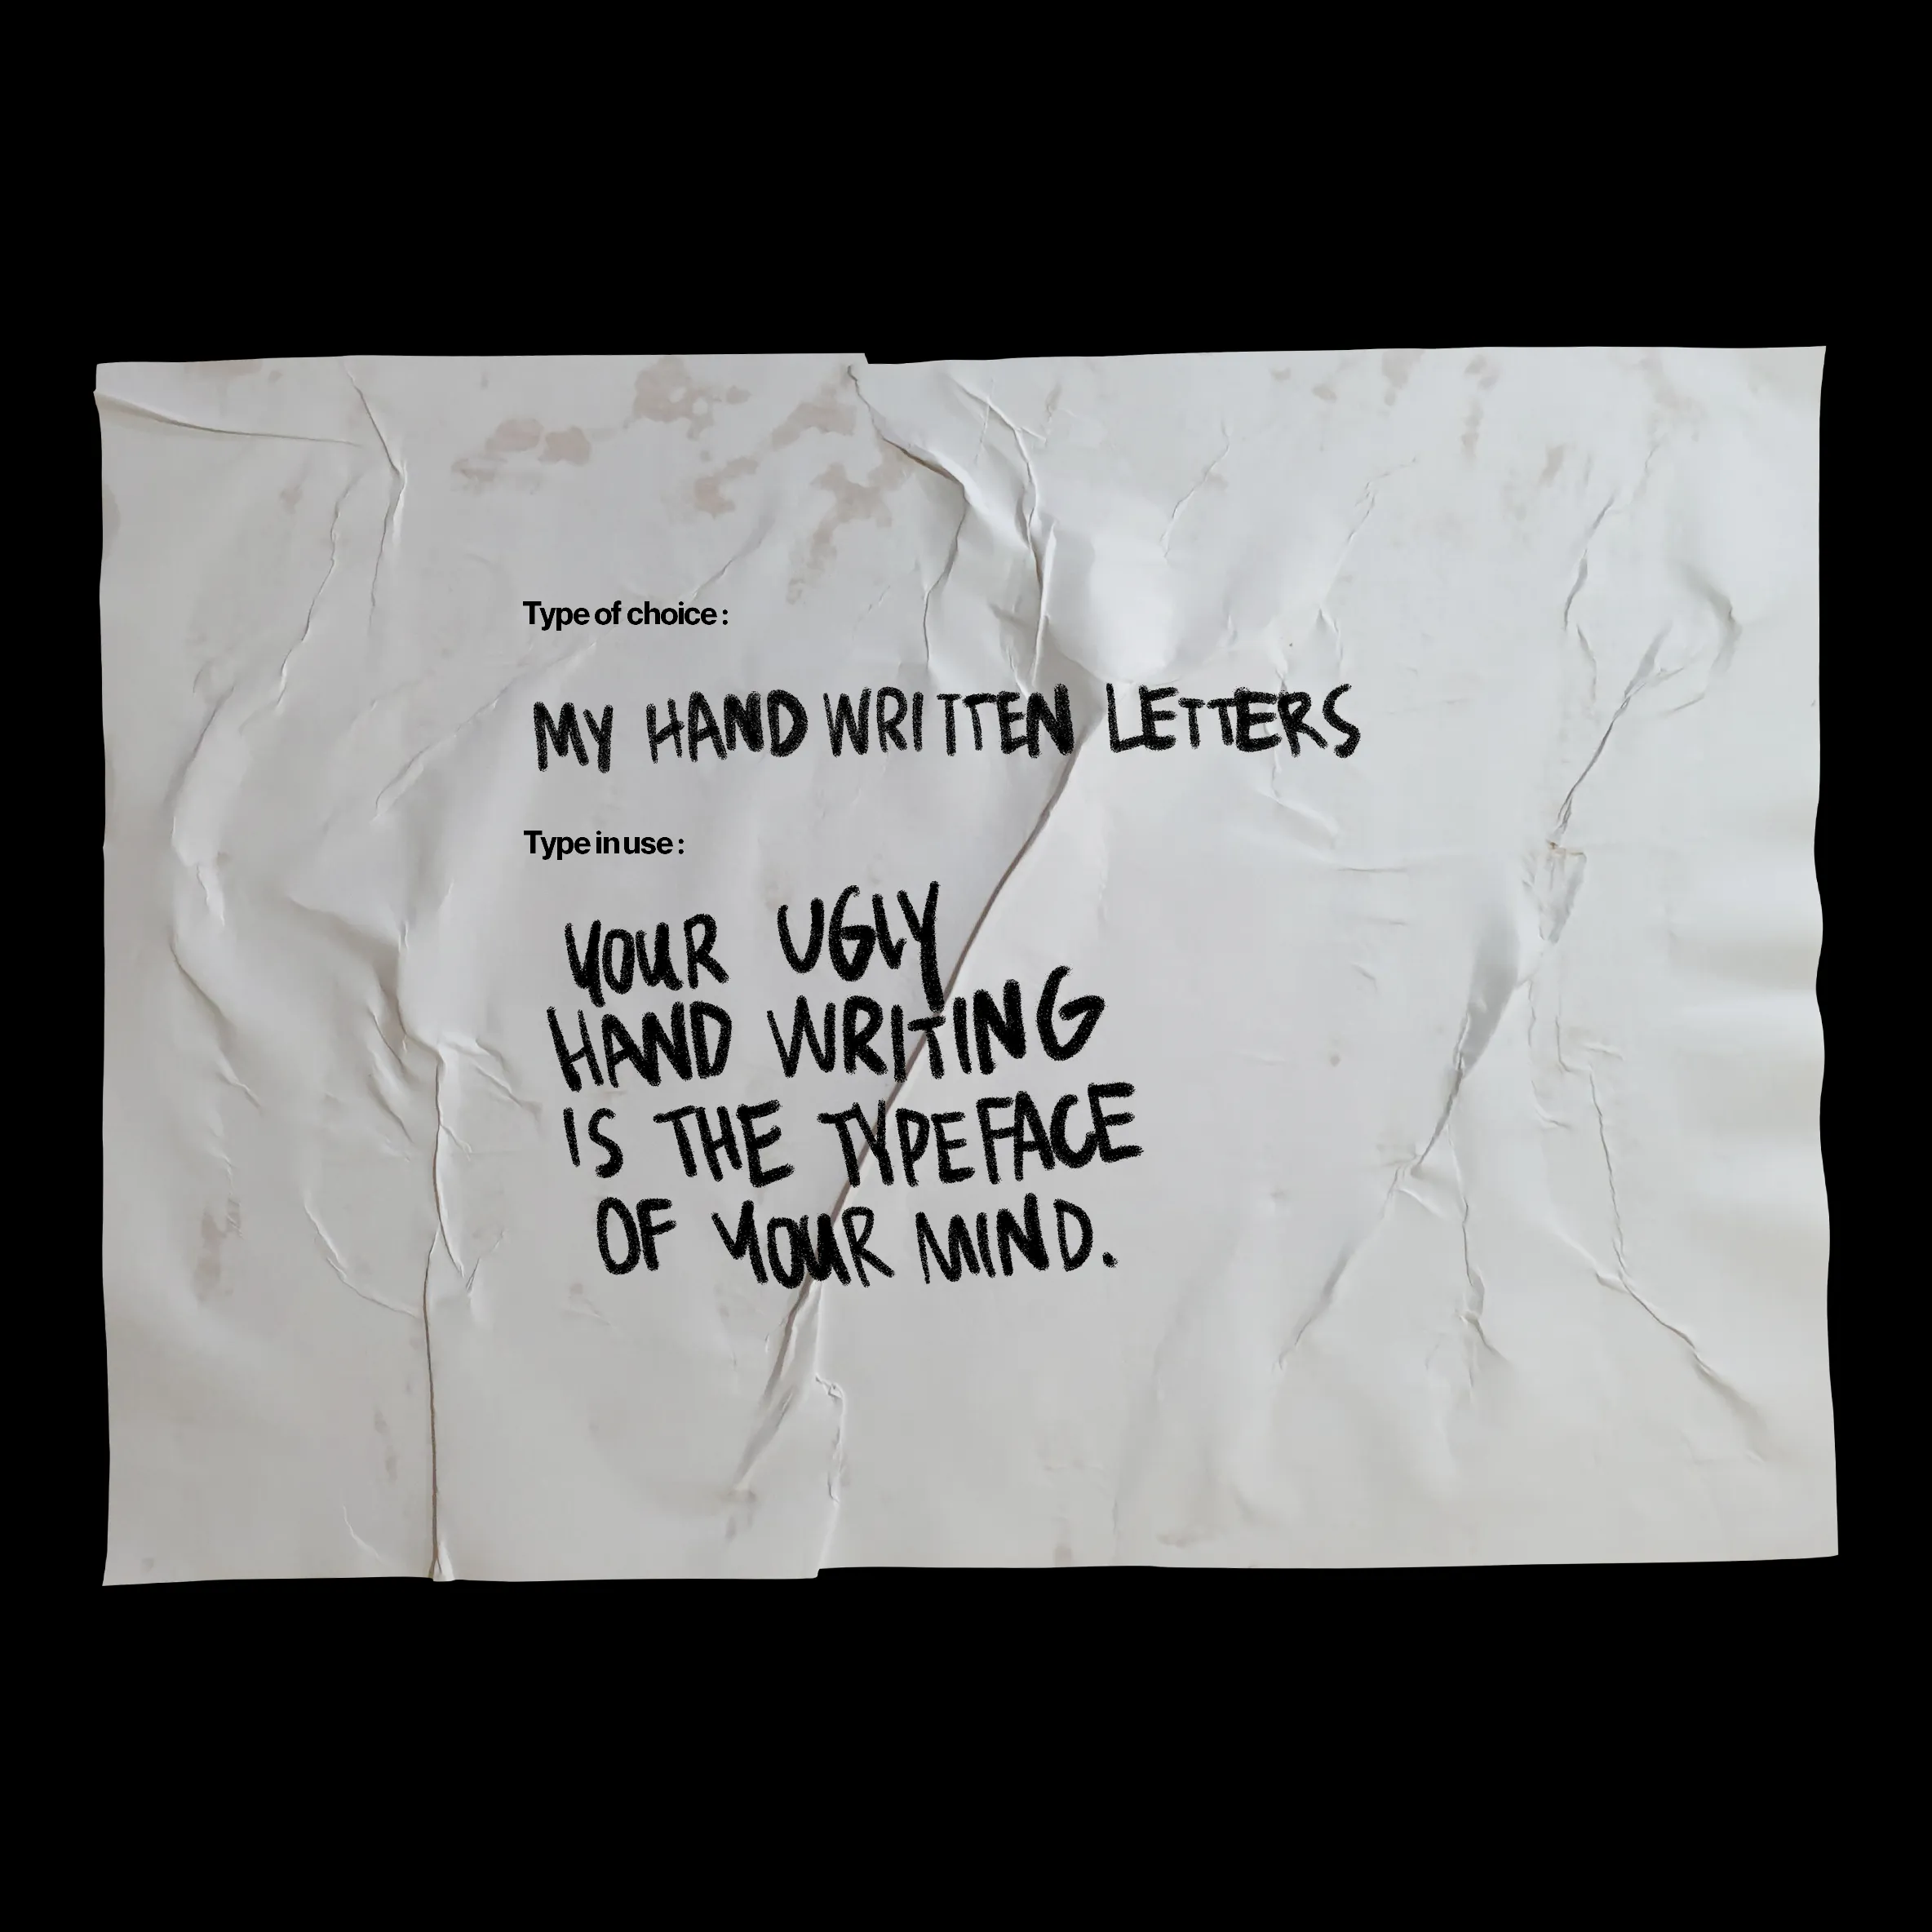 Type of choice :
MY HAND WRITTEN LETTERS
Type in use :
YOUR UGLY
HAND WRITING
IS THE TYPEFACE
OF YOUR MIND.